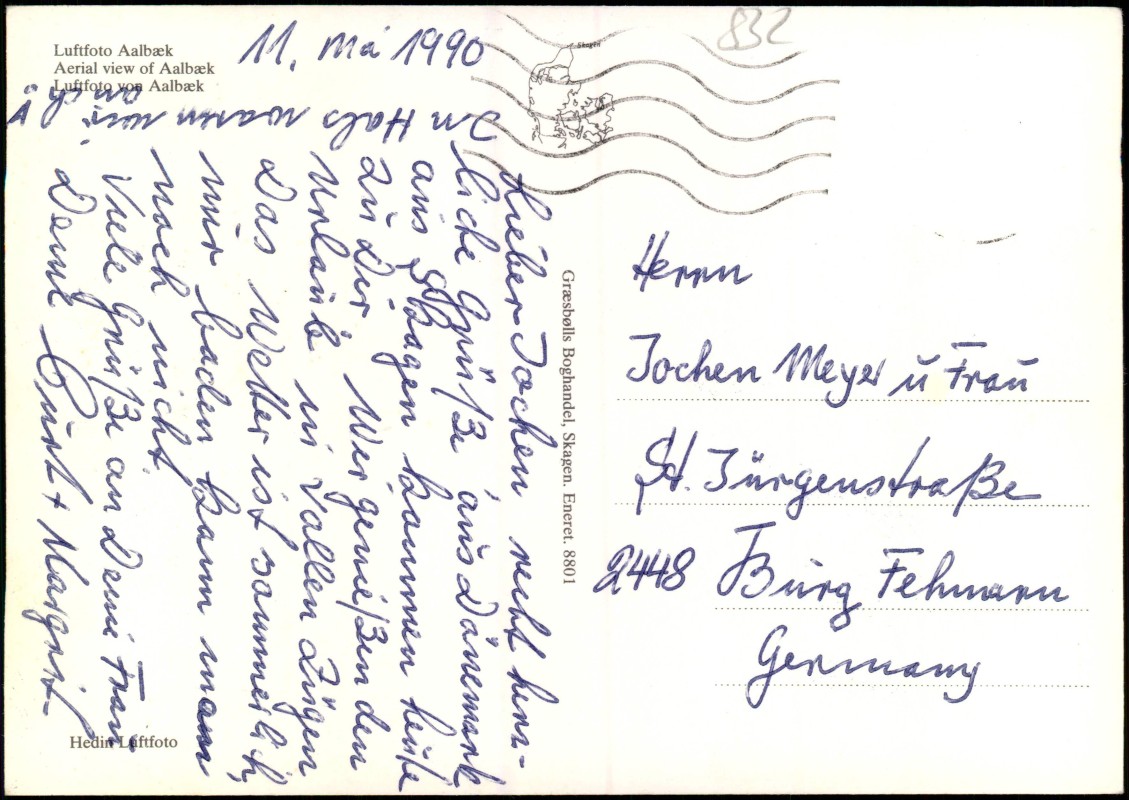 Luftfoto Aalbæk
Aerial view of Aalbæk
Luftfoto von Aalbæk
11. Mai 1990
832
Skagen
Lieber Jochen recht herz-
liche Grüße aus Dänemark
aus Skagen kommen heute
zu Dir. Wir genießen den
Urlaub in vollen Zügen
Das Wetter ist sommerlich,
nur baden kann man
noch nicht.
Viele Grüße an Deine Frau
Deine Curt + Margrit
In Hals waren wir auch
Græsbølls Boghandel, Skagen. Eneret. 8801
Hedin Luftfoto
Herrn
Jochen Meyer u Frau
St. Jürgenstraße
2448 Burg Fehmarn
Germany